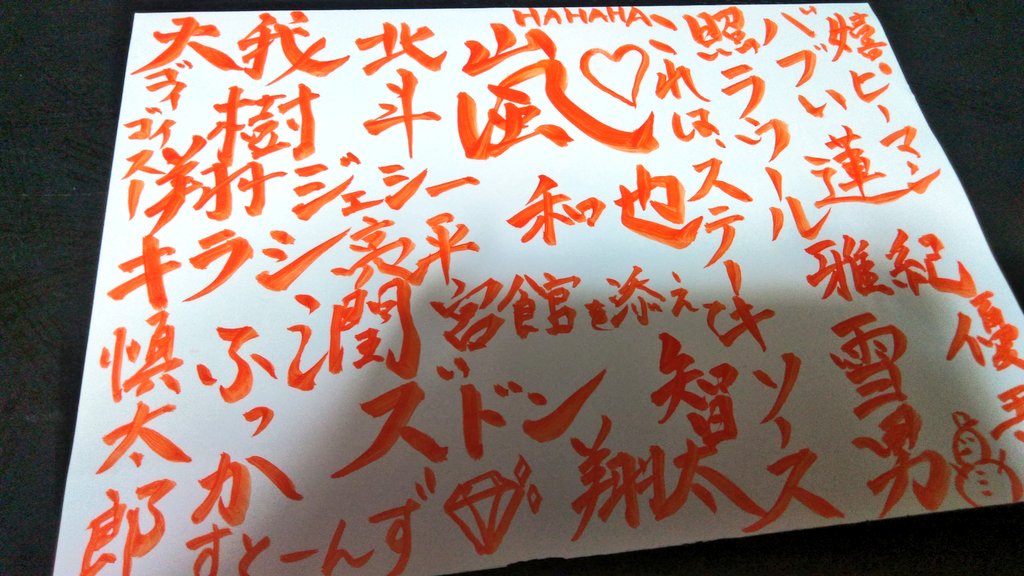 HAHAHA
嵐♡
大我
樹
北斗
ゴイゴイスー
翔
ジェシー
和也
これは、ステーキ
照
ラヴソール
バブい
嬉ピーマン
蓮
キラシ
亮平
潤
宮舘を添えて
雅紀
優吾
慎太郎
ふっか
ズドン
智
ソース
雪男
翔太
すとーんず